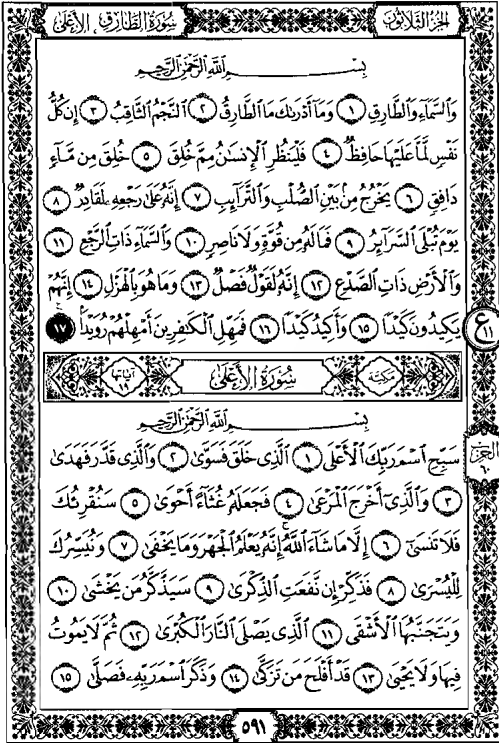 سُورَةُ الطَّارِقِ الأَعْلَى
الجُزْءُ الثَّلَاثُونَ
بِسْمِ اللَّهِ الرَّحْمَٰنِ الرَّحِيمِ
وَالسَّمَاءِ وَالطَّارِقِ ١ وَمَا أَدْرَىٰكَ مَا الطَّارِقُ ٢ النَّجْمُ الثَّاقِبُ ٣ إِن كُلُّ
نَفْسٍ لَّمَّا عَلَيْهَا حَافِظٌ ٤ فَلْيَنظُرِ الْإِنسَٰنُ مِمَّ خُلِقَ ٥ خُلِقَ مِن مَّاءٍ
دَافِقٍ ٦ يَخْرُجُ مِن بَيْنِ الصُّلْبِ وَالتَّرَائِبِ ٧ إِنَّهُ عَلَىٰ رَجْعِهِ لَقَادِرٌ ٨
يَوْمَ تُبْلَى السَّرَائِرُ ٩ فَمَا لَهُ مِن قُوَّةٍ وَلَا نَاصِرٍ ١٠ وَالسَّمَاءِ ذَاتِ الرَّجْعِ ١١
وَالْأَرْضِ ذَاتِ الصَّدْعِ ١٢ إِنَّهُ لَقَوْلٌ فَصْلٌ ١٣ وَمَا هُوَ بِالْهَزْلِ ١٤ إِنَّهُمْ
يَكِيدُونَ كَيْدًا ١٥ وَأَكِيدُ كَيْدًا ١٦ فَمَهِّلِ الْكَٰفِرِينَ أَمْهِلْهُمْ رُوَيْدًا ١٧
ع ١١
مَكِّيَّة
سُورَةُ الأَعْلَى
آيَاتُهَا ١٩
بِسْمِ اللَّهِ الرَّحْمَٰنِ الرَّحِيمِ
سَبِّحِ اسْمَ رَبِّكَ الْأَعْلَى ١ الَّذِى خَلَقَ فَسَوَّىٰ ٢ وَالَّذِى قَدَّرَ فَهَدَىٰ
الحزب ٦٠
٣ وَالَّذِى أَخْرَجَ الْمَرْعَىٰ ٤ فَجَعَلَهُ غُثَاءً أَحْوَىٰ ٥ سَنُقْرِئُكَ
فَلَا تَنسَىٰ ٦ إِلَّا مَا شَاءَ اللَّهُ إِنَّهُ يَعْلَمُ الْجَهْرَ وَمَا يَخْفَىٰ ٧ وَنُيَسِّرُكَ
لِلْيُسْرَىٰ ٨ فَذَكِّرْ إِن نَّفَعَتِ الذِّكْرَىٰ ٩ سَيَذَّكَّرُ مَن يَخْشَىٰ ١٠
وَيَتَجَنَّبُهَا الْأَشْقَى ١١ الَّذِى يَصْلَى النَّارَ الْكُبْرَىٰ ١٢ ثُمَّ لَا يَمُوتُ
فِيهَا وَلَا يَحْيَىٰ ١٣ قَدْ أَفْلَحَ مَن تَزَكَّىٰ ١٤ وَذَكَرَ اسْمَ رَبِّهِ فَصَلَّىٰ ١٥
٥٩١